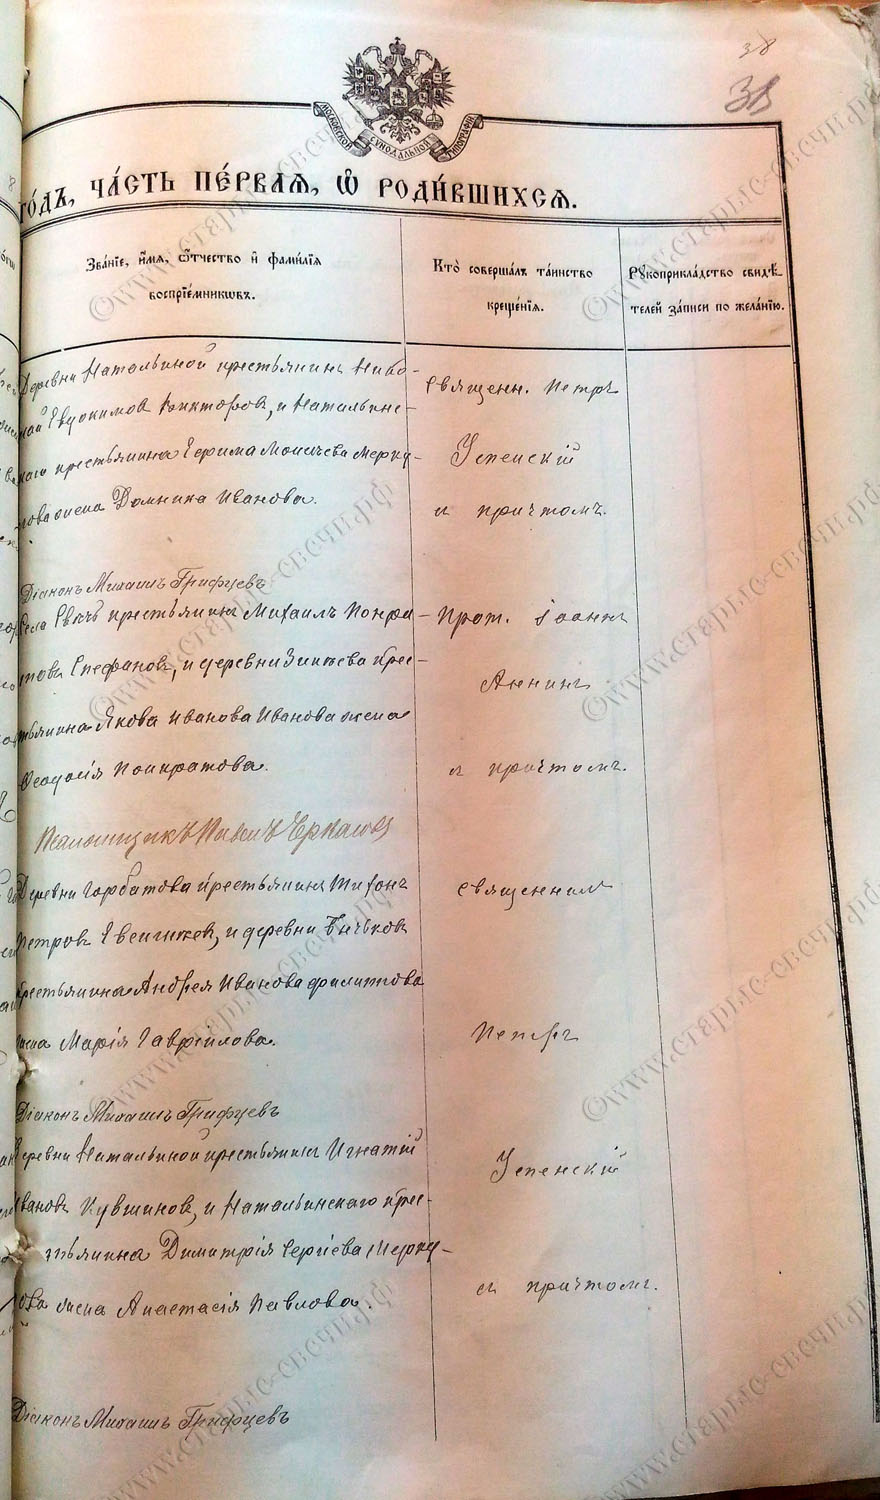 38
38
МОСКОВСКОЙ СѴНОДАЛЬНОЙ ТИПОГРАФІИ
го́дъ, ча́сть пе́рваѧ, ѡ҆ роди́вшихсѧ.
Зва́нїе, и҆́мѧ, ѻ҆́тчество и҆ фами́лїѧ
воспрїе́мникѡвъ.
Кто̀ соверша́лъ та́инство
креще́нїѧ.
Рꙋкоприкла́дство свидѣ́-
телей за́писи по жела́нїю.
Деревни Натальиной крестьянинъ
Евдокимовъ Викторовъ, и Натальинс-
каго крестьянина Ефима Моисеева Мерку-
лова жена Домника Иванова.
Священн. Петръ
Успенскій
съ причтомъ.
Діаконъ Михаилъ Грифцевъ
Села крестьянинъ Михаилъ
Стефановъ, и деревни крес-
тьянина Якова Иванова Иванова жена
Ѳеодосія Панкратова.
Прот. Іоаннъ
Анинъ
съ причтомъ.
Псаломщикъ
Деревни Горбатова крестьянинъ Тихонъ
Петровъ и деревни Бычковъ
крестьянина Андрея Иванова Филиппова
жена Марія Гаврилова.
Священникъ
Петръ
Успенскій
съ причтомъ.
Діаконъ Михаилъ Грифцевъ
Деревни Натальиной крестьянинъ Игнатій
Ивановъ Кувшиновъ, и Натальинскаго крес-
тьянина Димитрія Сергіева Мерку-
лова жена Анастасія Павлова.
Діаконъ Михаилъ Грифцевъ
©www.старые-свечи.рф